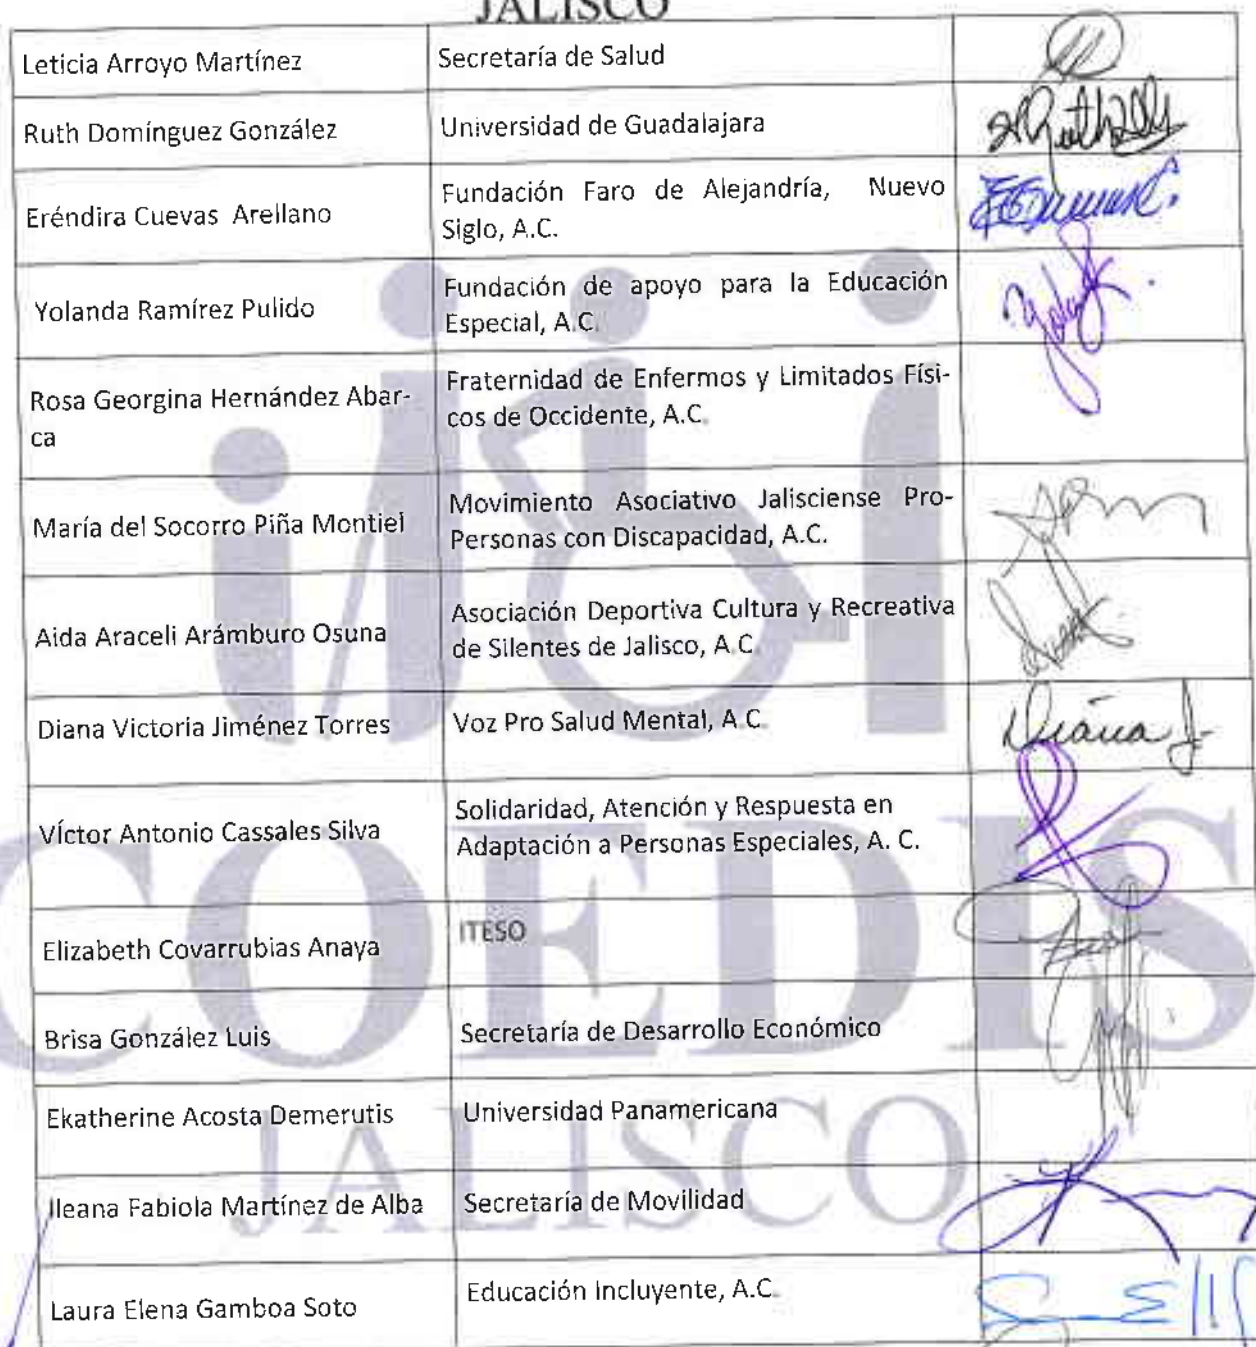 JALISCO
Leticia Arroyo Martínez
Secretaría de Salud
Ruth Domínguez González
Universidad de Guadalajara
Eréndira Cuevas Arellano
Fundación Faro de Alejandría, Nuevo
Siglo, A.C.
Yolanda Ramírez Pulido
Fundación de apoyo para la Educación
Especial, A.C.
Rosa Georgina Hernández Abar-
ca
Fraternidad de Enfermos y Limitados Físi-
cos de Occidente, A.C.
María del Socorro Piña Montiel
Movimiento Asociativo Jalisciense Pro-
Personas con Discapacidad, A.C.
Aida Araceli Arámburo Osuna
Asociación Deportiva Cultura y Recreativa
de Silentes de Jalisco, A.C.
Diana Victoria Jiménez Torres
Voz Pro Salud Mental, A.C.
Diana J.
Víctor Antonio Cassales Silva
Solidaridad, Atención y Respuesta en
Adaptación a Personas Especiales, A. C.
Elizabeth Covarrubias Anaya
ITESO
Brisa González Luis
Secretaría de Desarrollo Económico
Ekatherine Acosta Demerutis
Universidad Panamericana
Ileana Fabiola Martínez de Alba
Secretaría de Movilidad
Laura Elena Gamboa Soto
Educación Incluyente, A.C.
COEDIS
JALISCO